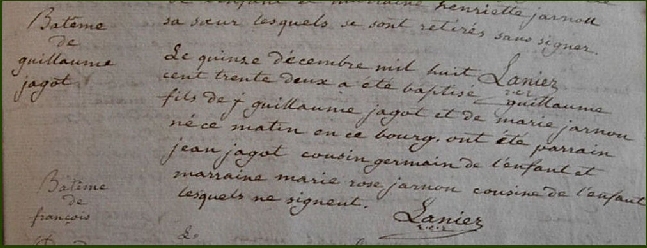 et marraine henriette jarnou
sa sœur lesquels se sont retirés sans signer.
Lanier
Batême
de
guillaume
jagot
Le quinze décembre mil huit
cent trente deux a été baptisé guillaume
fils de j guillaume jagot et de marie jarnou
né ce matin en ce bourg, ont été parrain
jean jagot cousin germain de l'enfant et
marraine marie rose jarnou cousine de l'enfant
lesquels ne signent.
Lanier
Batême
de
françois